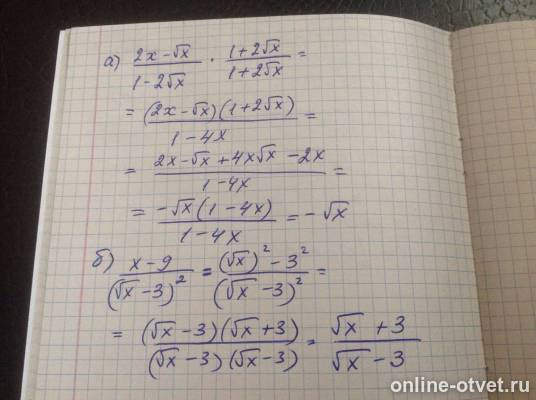 а) (2x - √x)/(1 - 2√x) · (1 + 2√x)/(1 + 2√x) =
= ((2x - √x)(1 + 2√x))/(1 - 4x) =
= (2x - √x + 4x√x - 2x)/(1 - 4x) =
= (-√x(1 - 4x))/(1 - 4x) = -√x
б) (x - 9)/(√x - 3)² = ((√x)² - 3²)/(√x - 3)² =
= ((√x - 3)(√x + 3))/((√x - 3)(√x - 3)) = (√x + 3)/(√x - 3)
online-otvet.ru